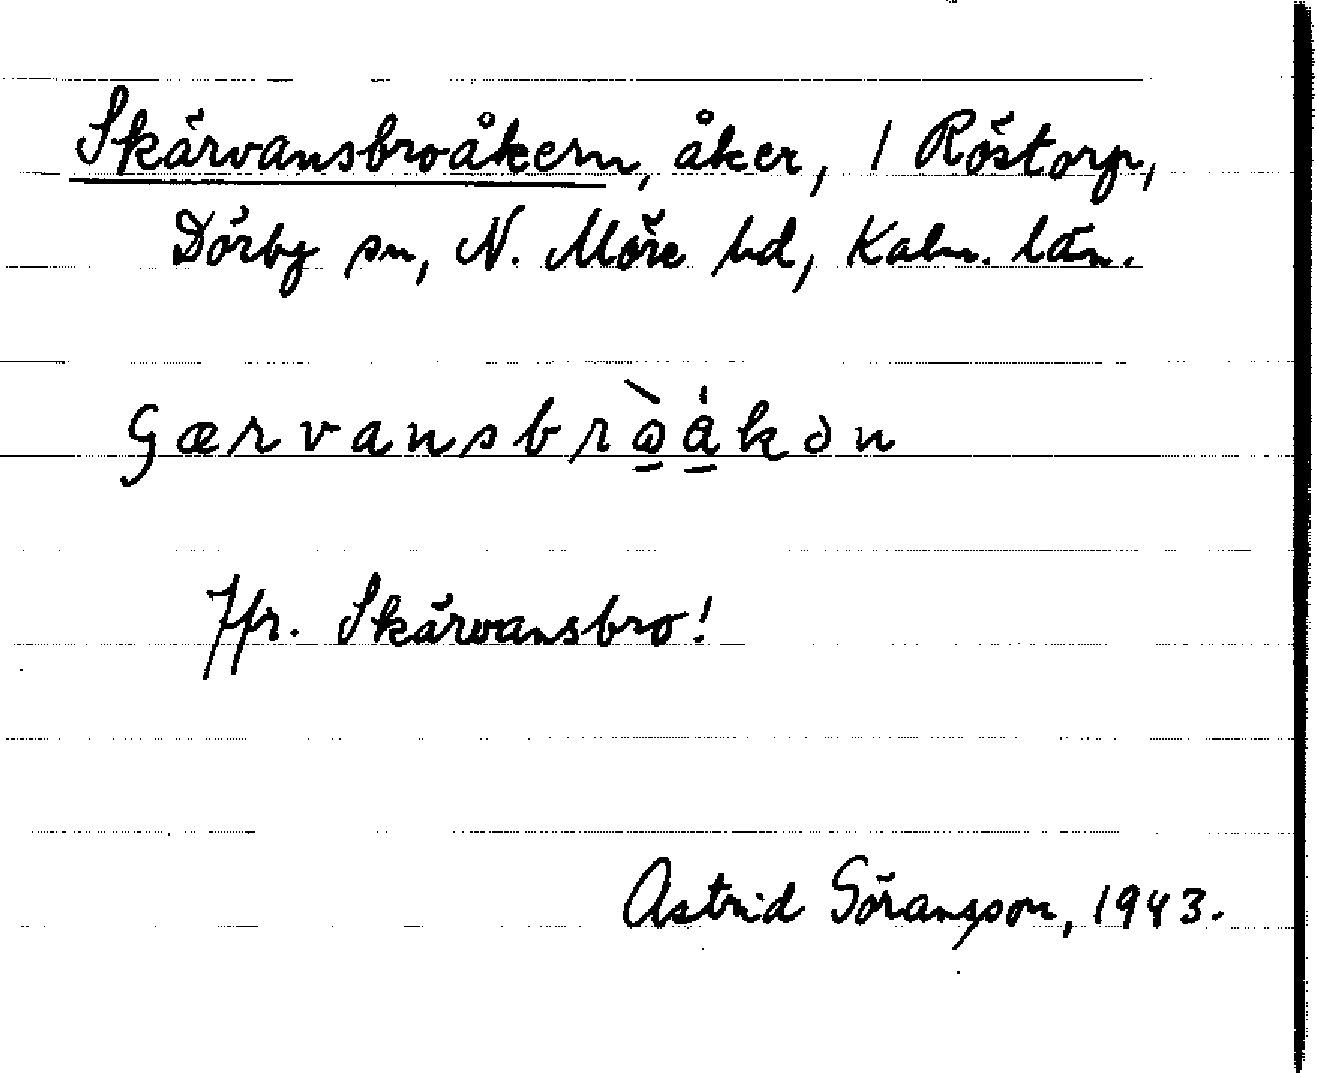 Skärvansbroåkern, åker, 1 Röstorp,
Dörby sn, N. Möre hd, Kalm. län.
Gærvansbrò̱å̱kən
Jfr. Skärvansbro!
Astrid Göransson, 1943.